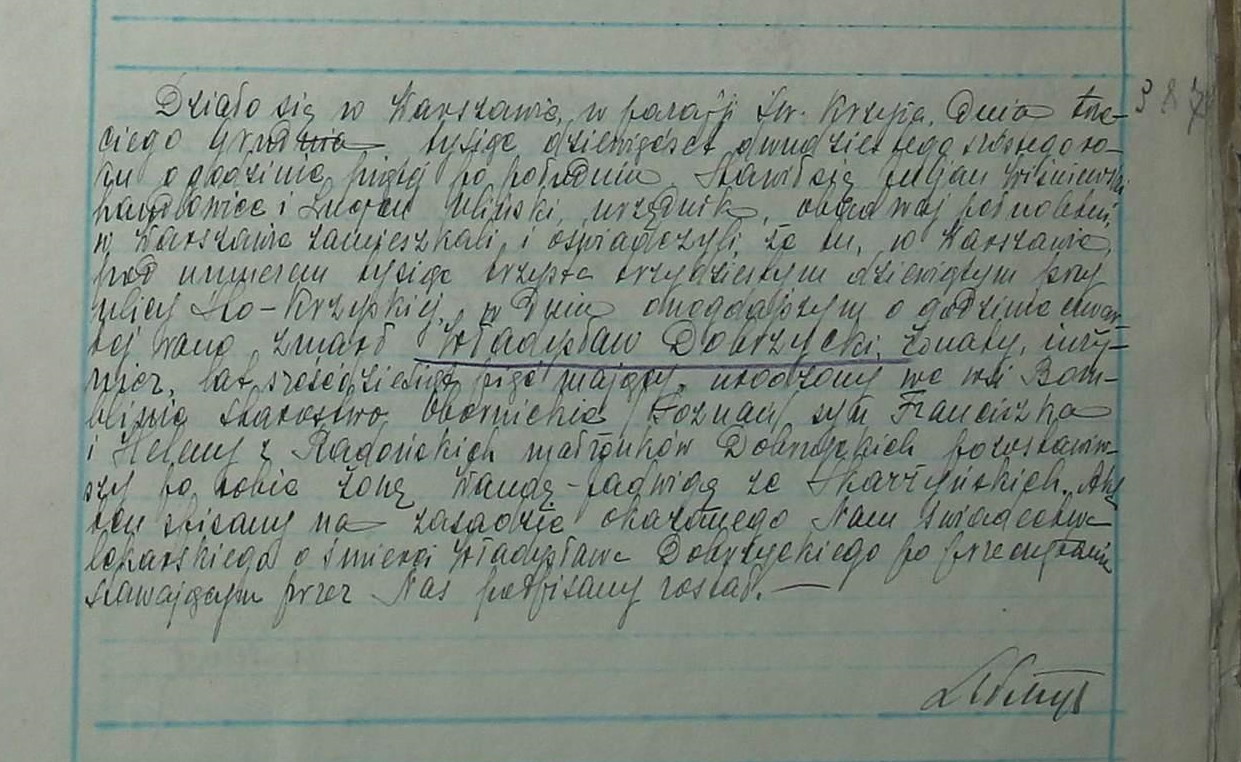 Działo się w Warszawie, w parafji Św. Krzyża, Dnia trze-
ciego grudnia tysiąc dziewięćset dwudziestego szóstego ro-
ku o godzinie piątej po południu. Stawił się Juljan Wiśniewski
handlowiec i Lucjan urzędnik, obydwaj pełnoletni,
w Warszawie zamieszkali, i oświadczyli że tu, w Warszawie
pod numerem tysiąc trzysta trzydziestym dziewiątym przy
ulicy Sto-Krzyskiej, w Dniu onegdajszym o godzinie czwar-
tej rano zmarł Władysław Dobrzycki, żonaty, inży-
nier, lat sześćdziesiąt pięć mający, urodzony we wsi Bom-
blinie starostwo Obornickie /Poznań/ syn Franciszka
i Heleny z Radońskich małżonków Dobrzyckich pozostawiw-
szy po sobie żonę Wandę-Jadwigę ze Skarżyńskich. Akt
ten spisany na zasadzie okazanego Nam świadectwa
lekarskiego o śmierci Władysława Dobrzyckiego po przeczytaniu
stawającym przez Nas podpisany został. —